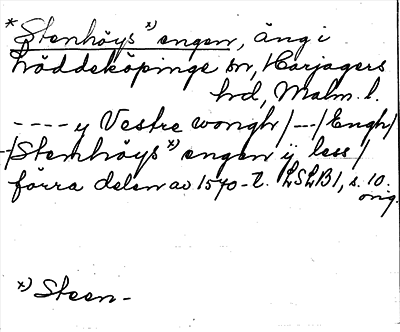 * Stenhöys x) engen, äng i
Löddeköpinge sn, Harjagers
hd, Malm. l.
---- y Vestre wongh/---/Engh/
-/Stenhöys x) engen ÿ less/
förra delen av 1540-t. LSLB1, s. 10.
orig.
x) Steen-